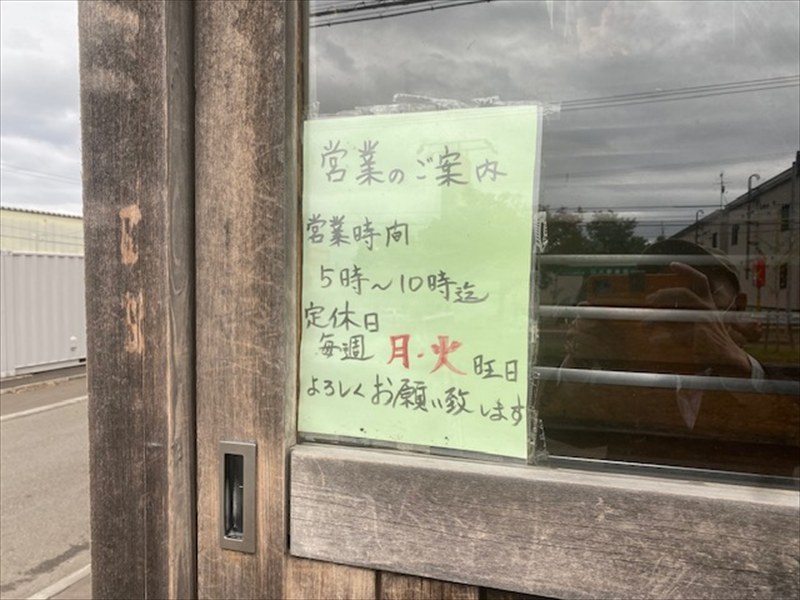 営業のご案内
営業時间
5時～10時迄
定休日
毎週 月・火 旺日
よろしくお願い致します